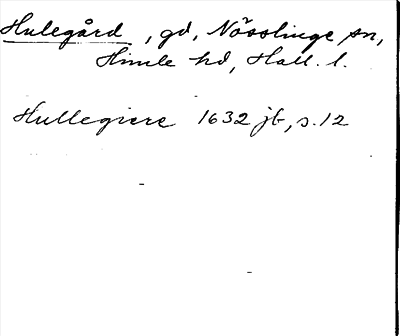 Hulegård, gd, Nösslinge sn,
Himle hd, Hall. l.
Hullegiere 1632 jb, s. 12